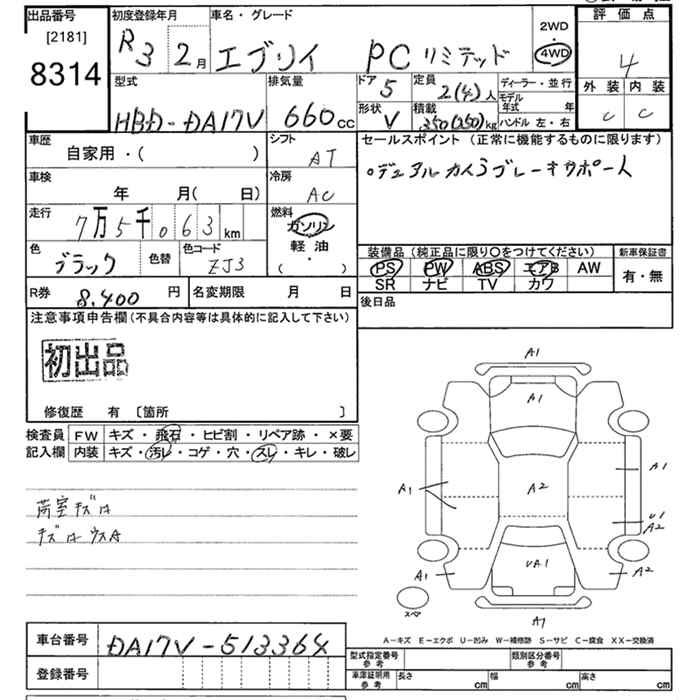 出品番号
[2181]
8314
初度登録年月
R3 2月
車名・グレード
エブリイ PCリミテッド
2WD
・
4WD
評価点
4
外装 内装
C C
型式
HBD-DA17V
排気量
660cc
ドア 5
形状 V
定員 2(4)人
積載 350(250)kg
ディーラー・並行
モデル年式 年
ハンドル 左・右
車歴
自家用・( )
シフト
AT
車検
年 月( 日)
冷房
AC
走行
7万5千063km
燃料
ガソリン
軽油
( ・ )
色
ブラック
色替
色コード
ZJ3
R券 8,400 円
名変期限 月 日
セールスポイント(正常に機能するものに限ります)
装備品(純正品に限り〇をつけてください)
PS PW ABS エアB AW
SR ナビ TV カワ
新車保証書
有・無
後日品
注意事項申告欄(不具合内容等は具体的に記入して下さい)
初出品
修復歴 有 〔箇所 〕
検査員記入欄
FW キズ・飛石・ヒビ割・リペア跡・×要
内装 キズ・汚レ・コゲ・穴・スレ・キレ・破レ
荷室キズ凹
キズ凹ウスA
A1
A1
A1
A1
A2
U1
A2
UA1
A1
A2
スペア
A1
A-キズ E-エクボ U-凹み W-補修跡 S-サビ C-腐食 XX-交換済
車台番号 DA17V-513364
登録番号
型式指定番号 参考
類別区分番号 参考
車庫証明用 参考
長さ cm 幅 cm 高さ cm